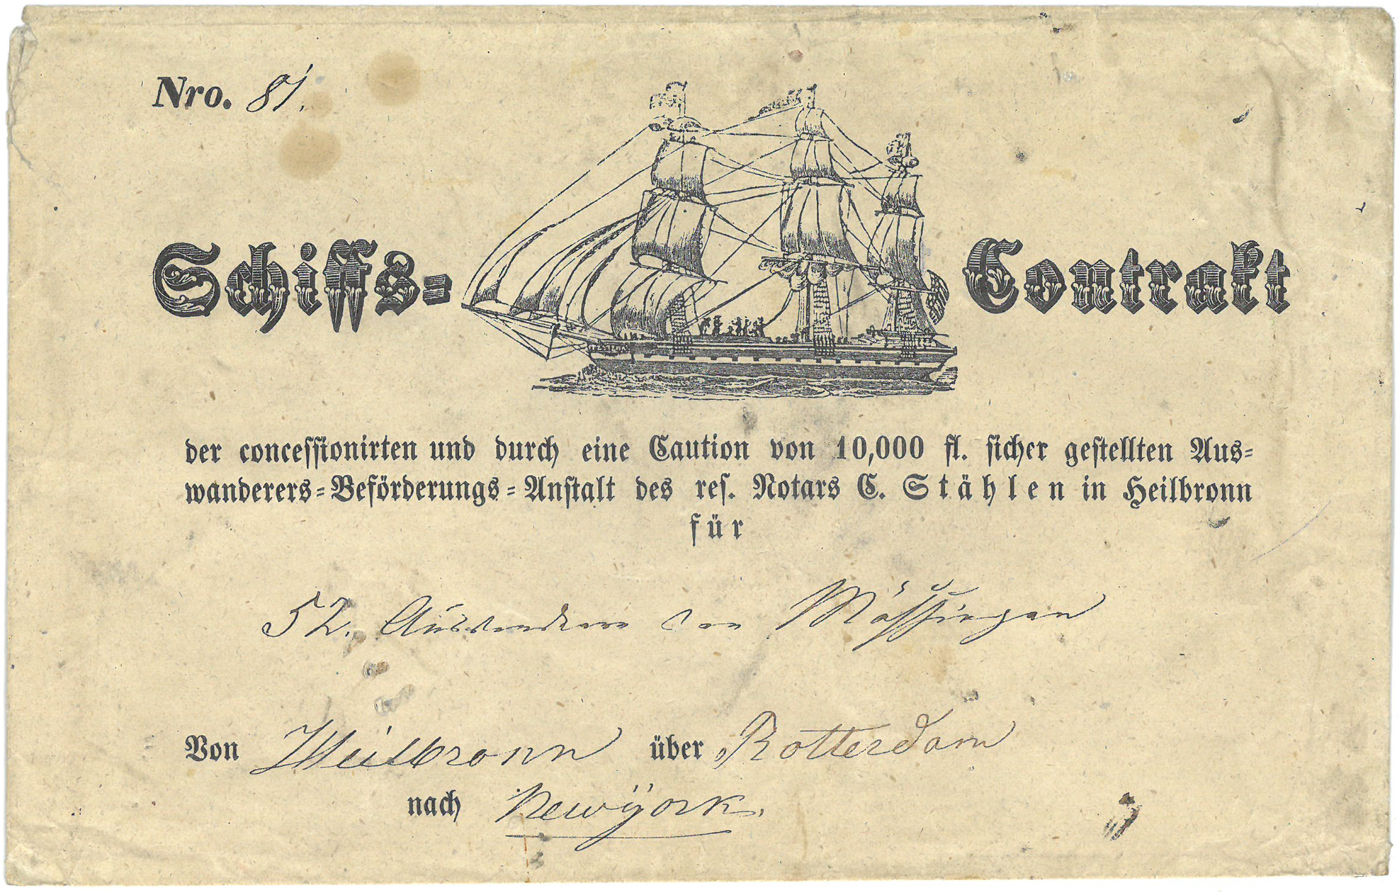 Nro. 81.
Schiffs-Contrakt
der concessionirten und durch eine Caution von 10,000 fl. sicher gestellten Aus-
wanderers-Beförderungs-Anstalt des res. Notars C. Stählen in Heilbronn
für
52. Auswanderer von Mössingen
Von Heilbronn über Rotterdam
nach Newÿork.